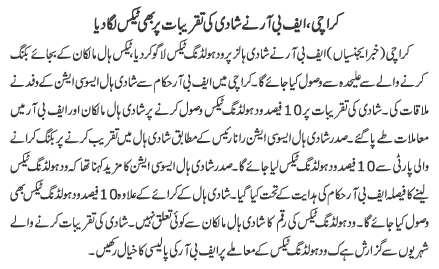 کراچی، ایف بی آر نے شادی کی تقریبات پر بھی ٹیکس لگا دیا
کراچی (خبر ایجنسیاں) ایف بی آر نے شادی ہالز پر ودہولڈنگ ٹیکس لاگو کر دیا، ٹیکس ہال مالکان کے بجائے بکنگ
کرنے والے سے علیحدہ سے وصول کیا جائے گا۔ کراچی میں ایف بی آر حکام سے شادی ہال ایسوسی ایشن کے وفد نے
ملاقات کی۔ شادی کی تقریبات پر 10 فیصد ودہولڈنگ ٹیکس وصول کرنے پر شادی ہال مالکان اور ایف بی آر میں
معاملات طے پا گئے۔ صدر شادی ہال ایسوسی ایشن رانا رئیس کے مطابق شادی ہال میں تقریب کرنے پر بکنگ کرانے
والی پارٹی سے 10 فیصد ودہولڈنگ ٹیکس لیا جائے گا۔ صدر شادی ہال ایسوسی ایشن کا مزید کہنا تھا کہ ودہولڈنگ ٹیکس
لینے کا فیصلہ ایف بی آر حکام کی ہدایت کے تحت کیا گیا۔ شادی ہال کے کرائے کے علاوہ 10 فیصد ودہولڈنگ ٹیکس بھی
وصول کیا جائے گا۔ ودہولڈنگ ٹیکس کی رقم کا شادی ہال مالکان سے کوئی تعلق نہیں۔ شادی کی تقریبات کرنے والے
شہریوں سے گزارش ہے کہ ودہولڈنگ ٹیکس کے معاملے پر ایف بی آر کی پالیسی کا خیال رکھیں۔